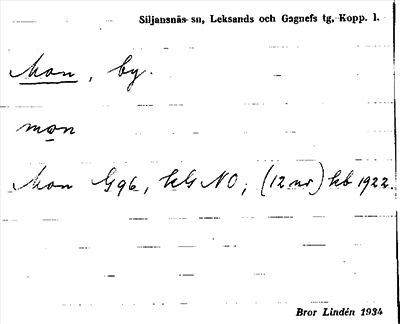 Siljansnäs sn, Leksands och Gagnefs tg, Kopp. l.
Mon, by.
mon
Mon G96, kG NO; (12 nr) kb 1922.
Bror Lindén 1934